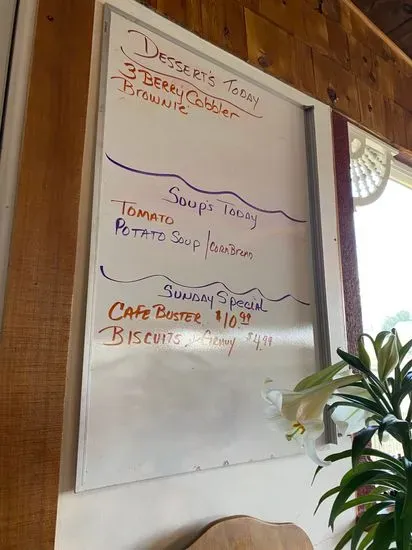 Dessert's Today
3 Berry Cobbler
Brownie
Soup's Today
Tomato
Potato Soup / Corn Bread
Sunday Special
Cafe Buster $10.99
Biscuits & Gravy $4.99